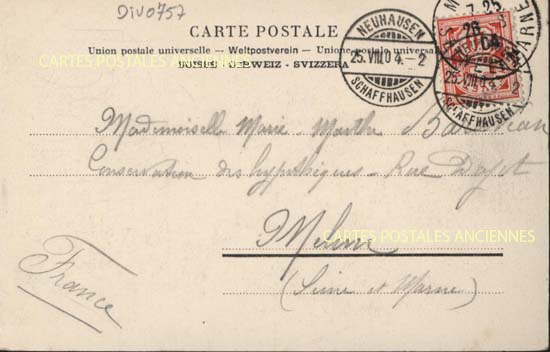 Div0757
CARTE POSTALE
Union postale universelle – Weltpostverein – Unione postale universale
SUISSE - SCHWEIZ - SVIZZERA
CARTES POSTALES ANCIENNES
NEUHAUSEN
25.VIII.04.–2
SCHAFFHAUSEN
7-25
26
25.VIII.04
SCHAFFHAUSEN
Mademoiselle Marie-Marthe
Conservation des hypothèques - Rue Dajot
CARTES POSTALES ANCIENNES
Melun
(Seine et Marne)
France